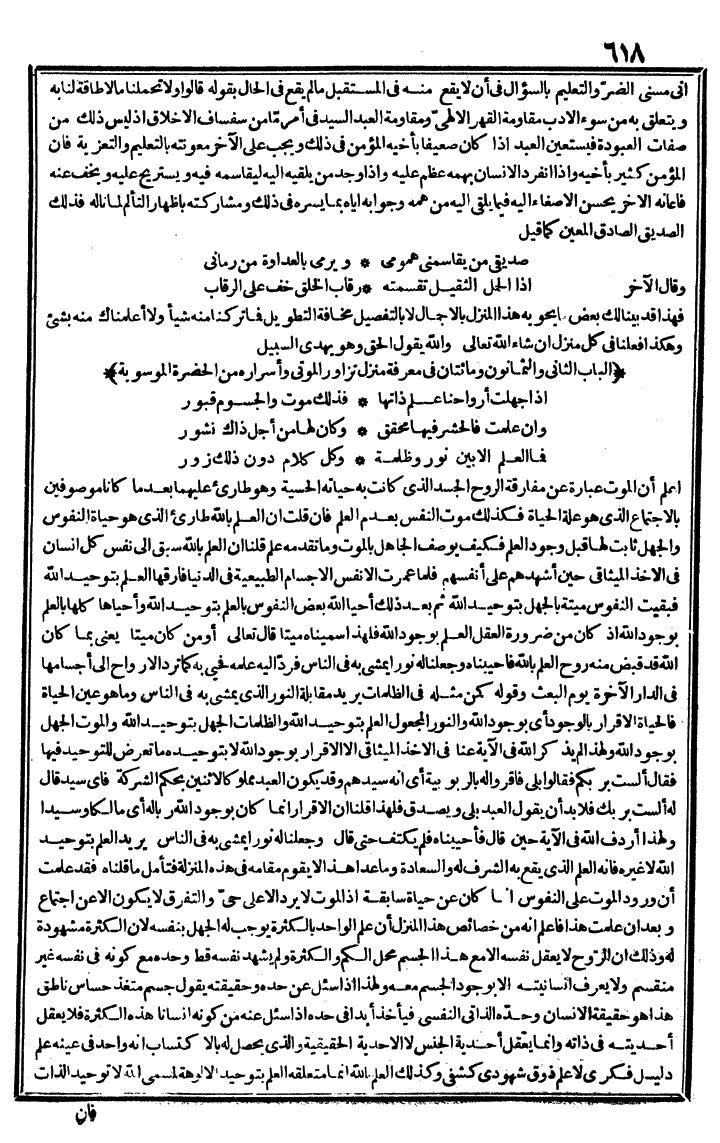 ٦١٨
انى مسنى الضرّ والتعليم بالسؤال فى أن لا يقع منه فى المستقبل ما لم يقع فى الحال بقوله قالوا ولا تحملنا ما لا طاقة لنا به
ويتعلق به من سوء الادب مقاومة القهر الالهىّ ومقاومة العبد السيد فى أمر مّا من سفساف الاخلاق اذ ليس ذلك من
صفات العبودة فيستعين العبد اذا كان ضعيفا بأخيه المؤمن فى ذلك ويجب على الآخر معونته بالتعليم والتعزية فان
المؤمن كثير بأخيه واذا انفرد الانسان بهمه عظم عليه واذا وجد من يلقيه اليه ليقاسمه فيه ويستريح عليه ويخف عنه
فاعانه الآخر بحسن الاصغاء اليه فيما يلقى اليه من همه وجوابه اياه بما يسره فى ذلك ومشاركته باظهار التألم لما ناله فذلك
الصديق الصادق المعين كما قيل
صديقى من يقاسمنى همومى * ويرمى بالعداوة من رمانى
وقال الآخر اذا الحمل الثقيل تقسمته * رقاب الخلق خف على الرقاب
فهذا قد بينا لك بعض ما يحويه هذا المنزل بالاجمال لا بالتفصيل مخافة التطويل فما تركنا منه شيأ ولا أعلمناك منه بشئ
وهكذا فعلنا فى كل منزل ان شاء الله تعالى والله يقول الحق وهو يهدى السبيل
﴿الباب الثانى والثمانون ومائتان فى معرفة منزل تزاور الموتى وأسراره من الحضرة الموسوية﴾
اذا جهلت أرواحنا علم ذاتها * فذلك موت والجسوم قبور
وان علمت فالحشر فيها محقق * وكان لها من أجل ذاك نشور
فما العلم الا بين نور وظلمة * وكل كلام دون ذلك زور
اعلم أن الموت عبارة عن مفارقة الروح الجسد الذى كانت به حياته الحسية وهو طارئ عليهما بعد ما كانا موصوفين
بالاجتماع الذى هو علة الحياة فكذلك موت النفس بعدم العلم فان قلت ان العلم بالله طارئ الذى هو حياة النفوس
والجهل ثابت لها قبل وجود العلم فكيف يوصف الجاهل بالموت وما تقدمه علم قلنا ان العلم بالله سبق الى نفس كل انسان
فى الاخذ الميثاقى حين أشهدهم على أنفسهم فلما عمرت الانفس الاجسام الطبيعية فى الدنيا فارقها العلم بتوحيد الله
فبقيت النفوس ميتة بالجهل بتوحيد الله ثم بعد ذلك أحيا الله بعض النفوس بالعلم بتوحيد الله وأحياها كلها بالعلم
بوجود الله اذ كان من ضرورة العقل العلم بوجود الله فلهذا سميناه ميتا قال تعالى أو من كان ميتا يعنى بما كان
الله قد قبض منه روح العلم بالله فاحييناه وجعلنا له نورا يمشى به فى الناس فردّ اليه علمه فحيى به كما ترد الارواح الى أجسامها
فى الدار الآخرة يوم البعث وقوله كمن مثله فى الظلمات يريد مقابلة النور الذى يمشى به فى الناس وما هو عين الحياة
فالحياة الاقرار بالوجود أى بوجود الله والنور المجعول العلم بتوحيد الله والظلمات الجهل بتوحيد الله والموت الجهل
بوجود الله ولهذا لم يذكر الله فى الآية عنا فى الاخذ الميثاقى الا الاقرار بوجود الله لا بتوحيده ما تعرض للتوحيد فيها
فقال ألست بربكم فقالوا بلى فاقروا له بالربوبية أى انه سيدهم وقد يكون العبد مملوكا لاثنين بحكم الشركة فاى سيد قال
له ألست بربك فلا بد أن يقول العبد بلى ويصدق فلهذا قلنا ان الاقرار انما كان بوجود الله ربا له أى مالكا وسيدا
ولهذا أردف الله فى الآية حين قال فأحييناه فلم يكتف حتى قال وجعلنا له نورا يمشى به فى الناس يريد العلم بتوحيد
الله لا غيره فانه العلم الذى يقع به الشرف له والسعادة وما عدا هذا لا يقوم مقامه فى هذه المنزلة فتأمل ما قلناه فقد علمت
أن ورود الموت على النفوس انما كان عن حياة سابقة اذ الموت لا يرد الا على حىّ والتفرق لا يكون الا عن اجتماع
وبعد ان علمت هذا فاعلم انه من خصائص هذا المنزل أن علم الواحد بالكثرة يوجب له الجهل بنفسه لان الكثرة مشهودة
له وذلك ان الروح لا يعقل نفسه الا مع هذا الجسم محل الكم والكثرة ولم يشهد نفسه قط وحده مع كونه فى نفسه غير
منقسم ولا يعرف انسانيته الا بوجود الجسم معه ولهذا اذا سئل عن حده وحقيقته يقول جسم متغذ حساس ناطق
هذا هو حقيقة الانسان وحدّه الذاتى النفسى فيأخذ أبدا فى حده اذا سئل عنه من كونه انسانا هذه الكثرة فلا يعقل
أحديته فى ذاته وانما يعقل أحدية الجنس لا الاحدية الحقيقية والذى يحصل له بالاكتساب انه واحد فى عينه علم
دليل فكرى لا علم ذوق شهودى كشفى وكذلك العلم بالله انما متعلقه العلم بتوحيد الالوهة لمسمى الله لا توحيد الذات
فان